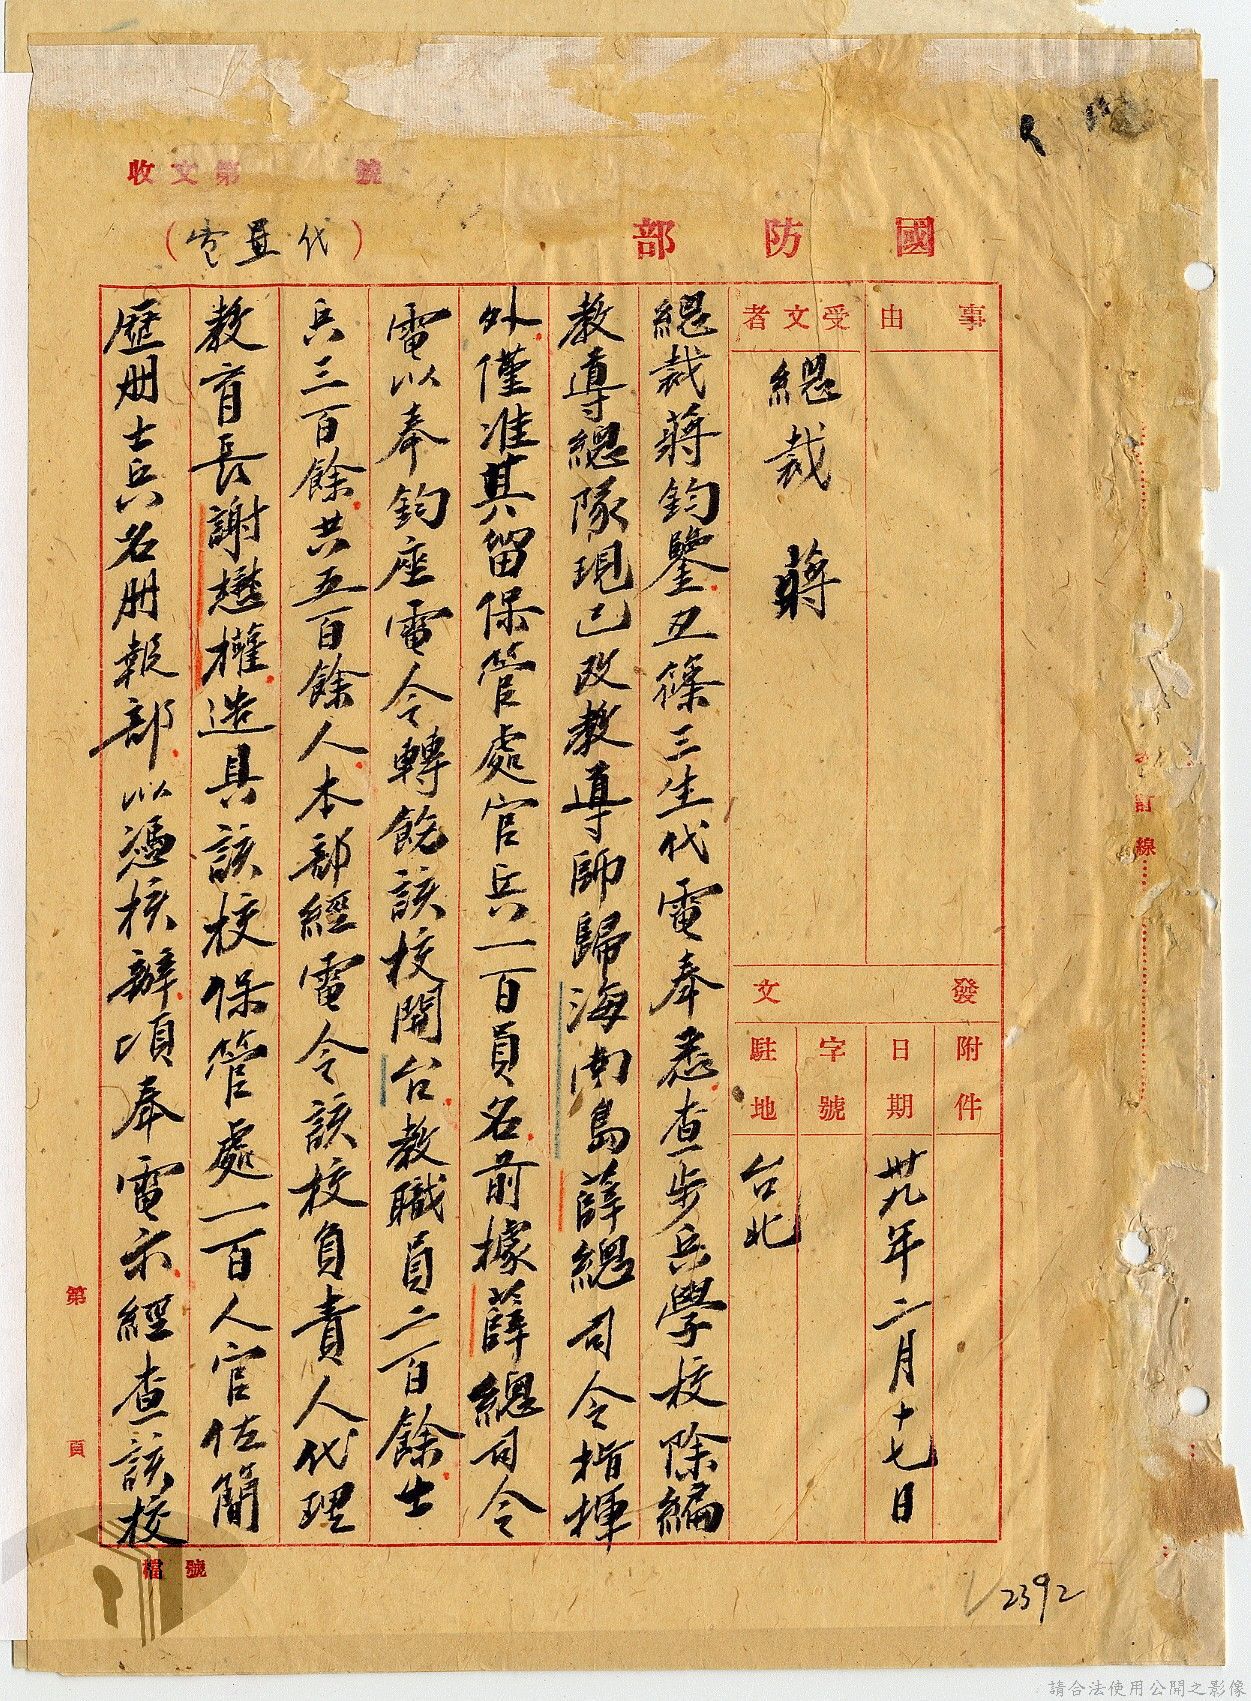 收文第 號
國防部
(代電)
事由
受文者
總裁 蔣
發文
附件
日期
卅九年二月十七日
字號
駐地
台北
總裁蔣鈞鑒丑篠三生代電奉悉查步兵學校除編
教導總隊現已改教導師歸海南島薛總司令指揮
外僅准其留保管處官兵一百員名前據薛總司令
電以奉鈞座電令轉飭該校開台教職員二百餘士
兵三百餘共五百餘人本部經電令該校負責人代理
教育長謝懋權造具該校保管處一百人官佐簡
歷册士兵名册報部以憑核辦頃奉電示經查該校
第 頁
檔號
訂線
2392
請合法使用公開之影像